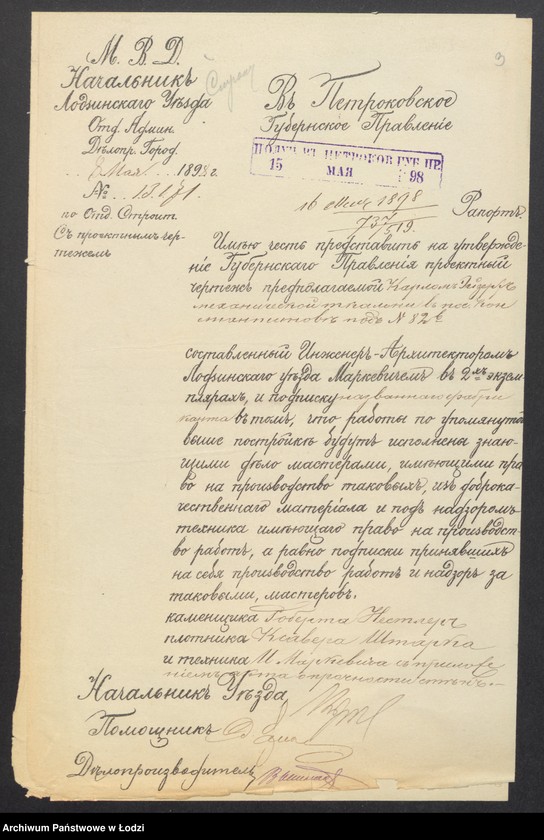 3
М. В. Д.
Начальникъ
Лодзинскаго Уѣзда
Отд. Админ.
Дѣлопр. Город.
8 Мая 1898 г.
№
по Отд. Строит.
Съ проэктнымъ чер-
тежемъ
Въ Петроковское
Губернское Правленіе
ПОЛУЧ. ВЪ ПЕТРОКОВ. ГУБ. ПР.
15 МАЯ 98
16 Мая 1898
737/519.
Рапортъ.
Имѣю честь представить на утвержде-
ніе Губернскаго Правленія проэктный
чертежъ предполагаемой Карломъ
механической ткальни въ пос. Кон
стантиновъ подъ № 82
составленный Инженеръ-Архитекторомъ
Лодзинскаго уѣзда Маркевичемъ въ 2хъ экзем-
плярахъ, и подписку названнаго фабри
канта въ томъ, что работы по упомянутой
выше постройкѣ будутъ исполнены знаю-
щими дѣло мастерами, имѣющими пра
во на производство таковыхъ, изъ доброка-
чественнаго матеріала и подъ надзоромъ
техника имѣющаго право на производст-
во работъ, а равно подписки принявшихъ
на себя производство работъ и надзоръ за
таковыми, мастеровъ.
каменщика Роберта Нестлеръ
плотника Ксавера Штарка
и техника И. Маркевича съ приложе
ніемъ о прочности стѣнъ.
Начальникъ Уѣзда,
Помощникъ
Дѣлопроизводитель,
Archiwum Państwowe w Łodzi